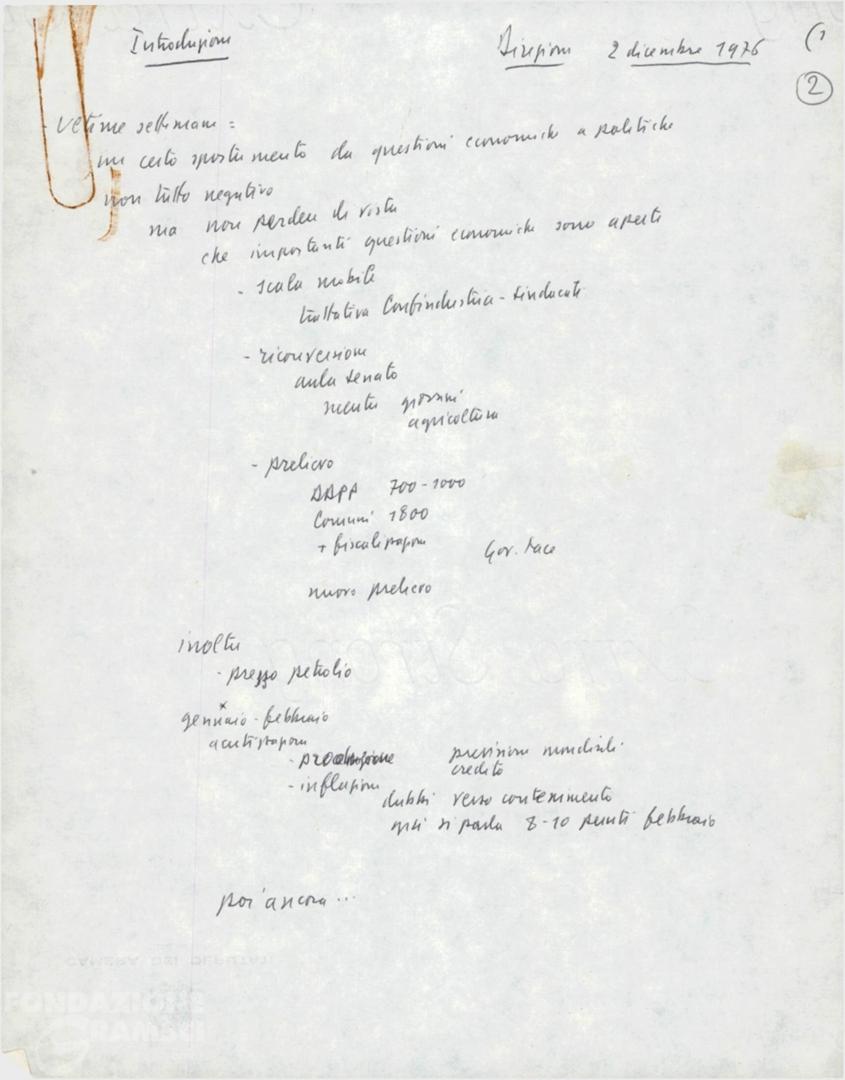 Introduzione Direzione 2 dicembre 1976 (1
2
- Ultime settimane =
un certo spostamento da questioni economiche a politiche
non tutto negativo
ma non perdere di vista
che importanti questioni economiche sono aperte
- scala mobile
trattativa Confindustria - Sindacati
- riconversione
aula Senato
giovani
agricoltura
- prelievo
700 - 1000
Comuni 1800
Gov. tace
nuovo prelievo
inoltre
- prezzo petrolio
gennaio - febbraio
- produzione previsioni mondiali
credito
- inflazione
dubbi verso contenimento
qui si parla 8-10 punti febbraio
poi ancora ...
CAMERA DEI DEPUTATI
FONDAZIONE
GRAMSCI